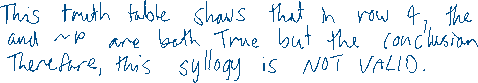 This truth table shows that in row 4, the
and ~p are both True but the conclusion
Therefore, this syllogy is NOT VALID.